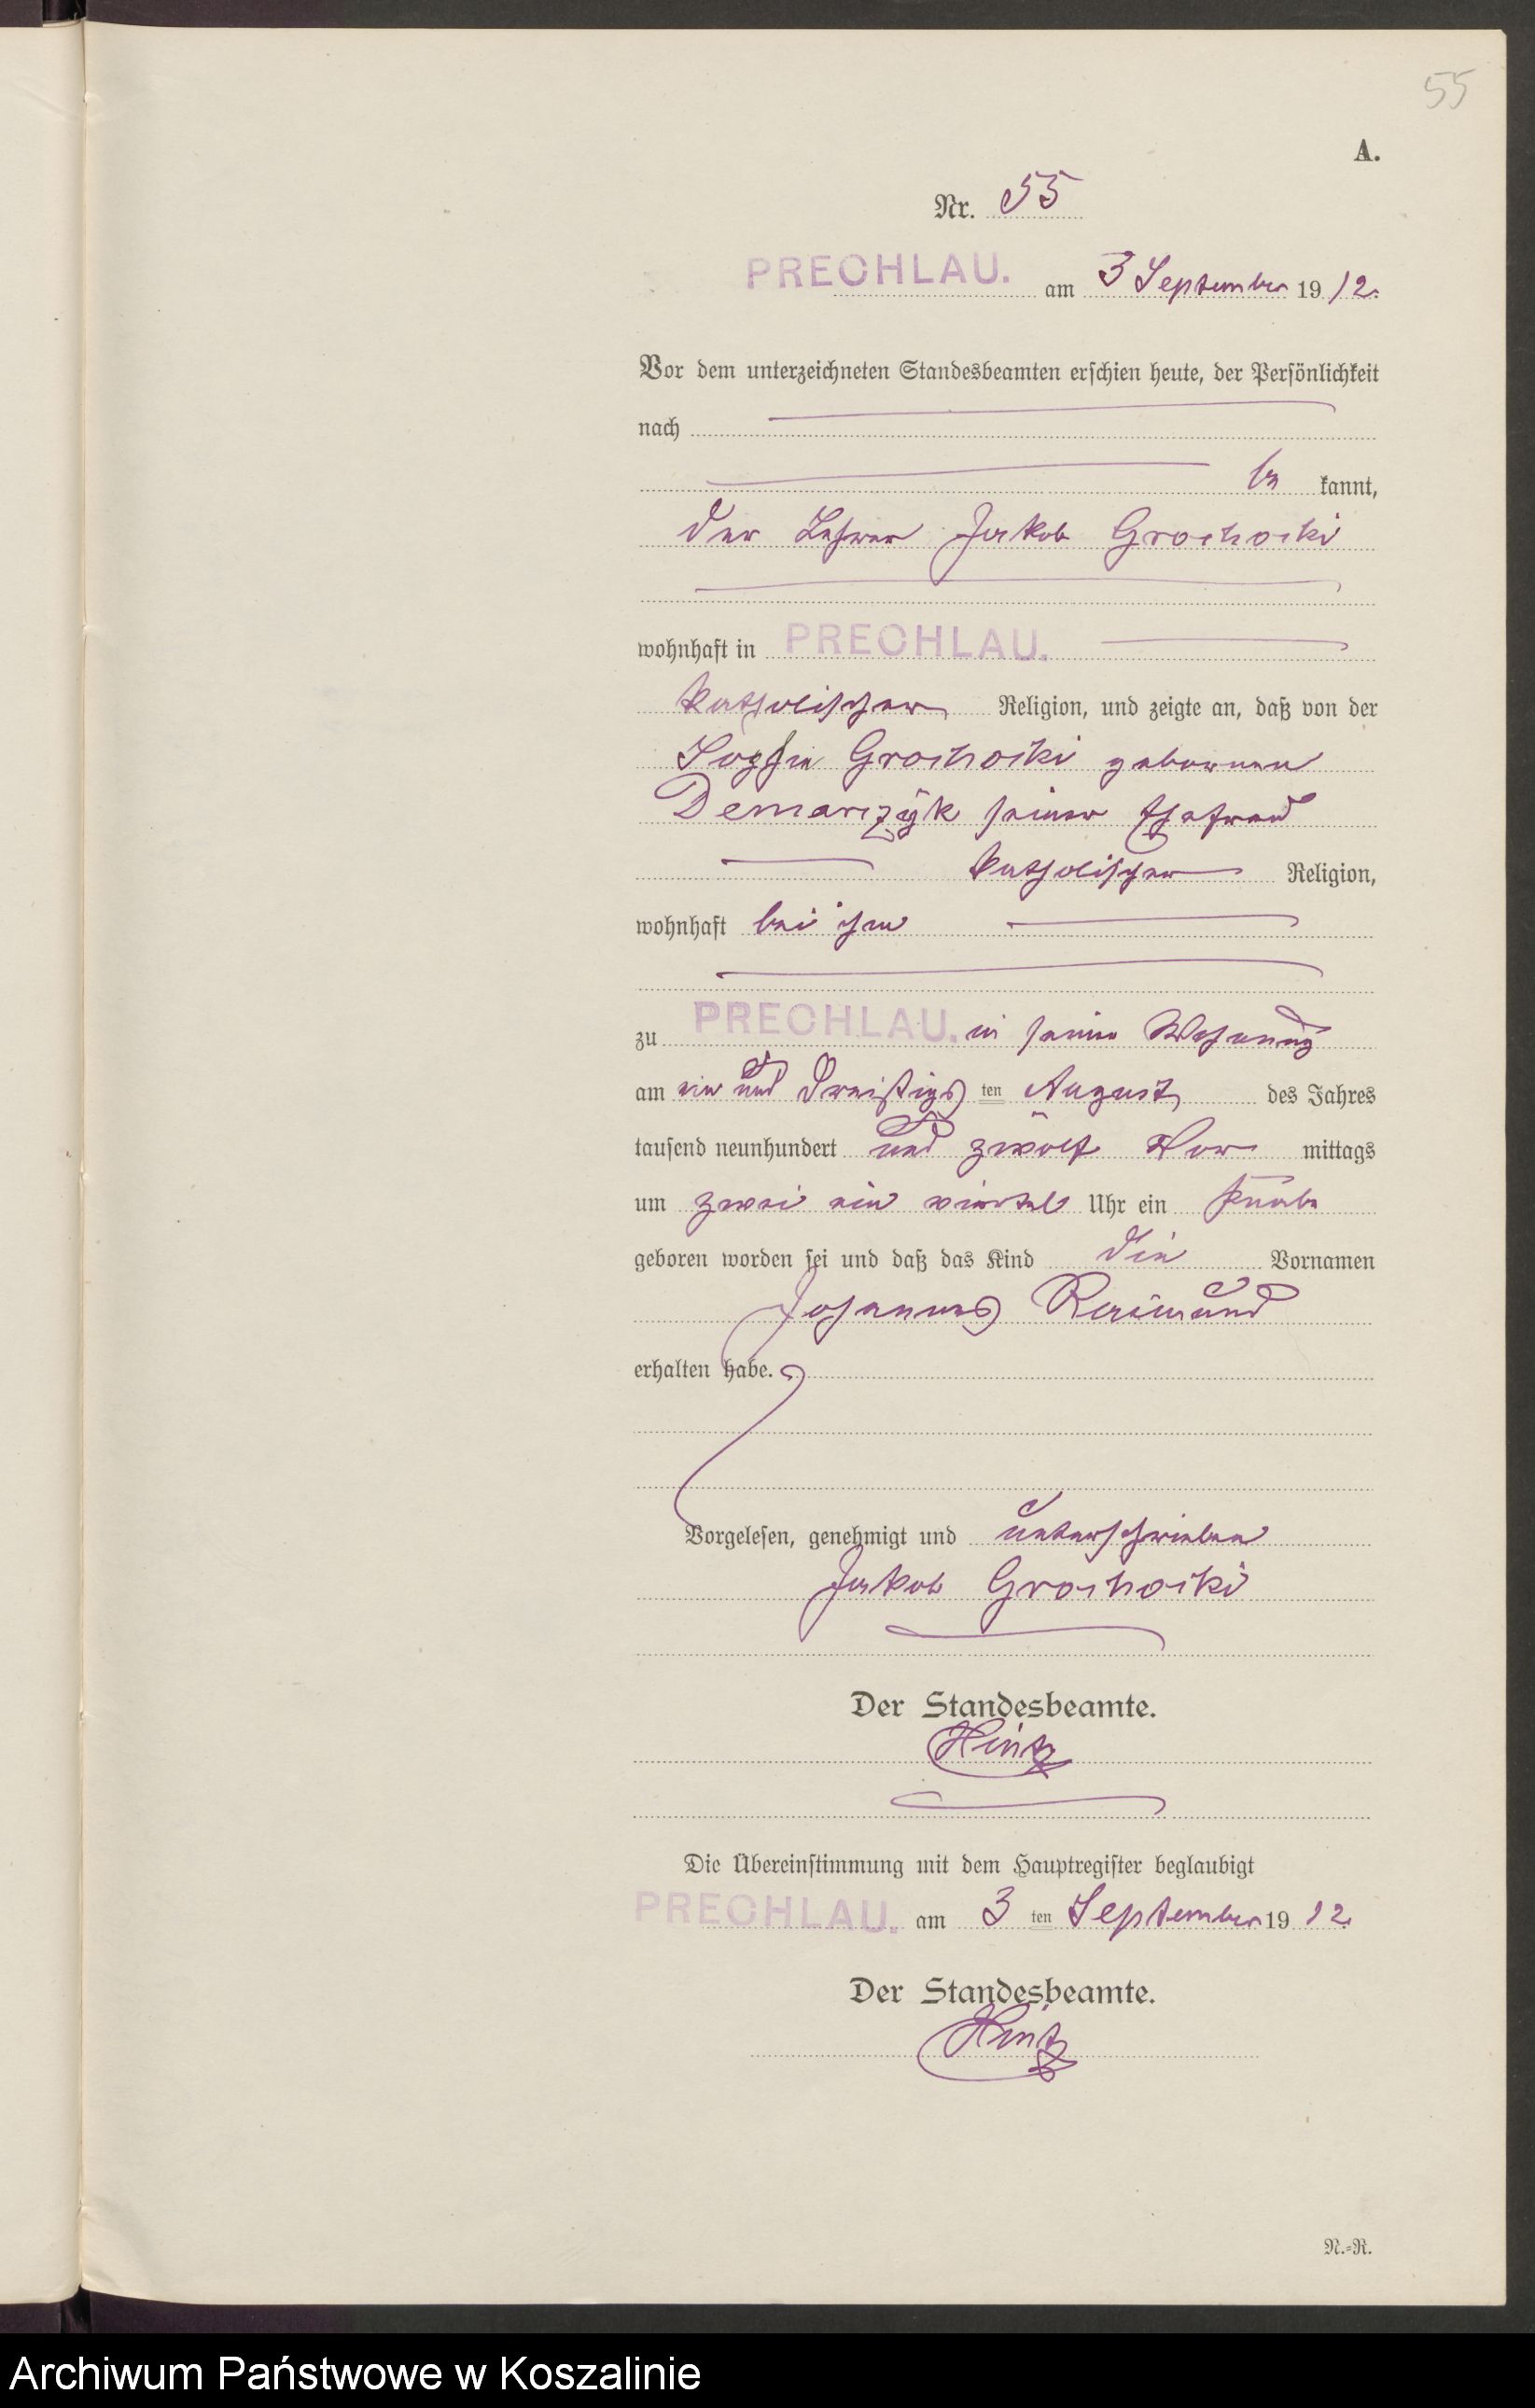 55
A.
Nr. 55
PRECHLAU. am 3 September 1912.
Vor dem unterzeichneten Standesbeamten erschien heute, der Persönlichkeit
nach
be kannt,
der Lehrer Jakob Grochocki
wohnhaft in PRECHLAU.
katholischer Religion, und zeigte an, daß von der
Sophie Grochocki geborenen
Demarczyk seiner Ehefrau
katholischer Religion,
wohnhaft bei ihm
zu PRECHLAU. in seiner Wohnung
am ein und dreißigs ten August des Jahres
tausend neunhundert und zwölf Vor mittags
um zwei ein viertel Uhr ein Knabe
geboren worden sei und daß das Kind die Vornamen
Johannes Raimund
erhalten habe.
Vorgelesen, genehmigt und unterschrieben
Jakob Grochocki
Der Standesbeamte.
Hintz
Die Übereinstimmung mit dem Hauptregister beglaubigt
PRECHLAU. am 3 ten September 1912.
Der Standesbeamte.
Hintz
N.-R.
Archiwum Państwowe w Koszalinie